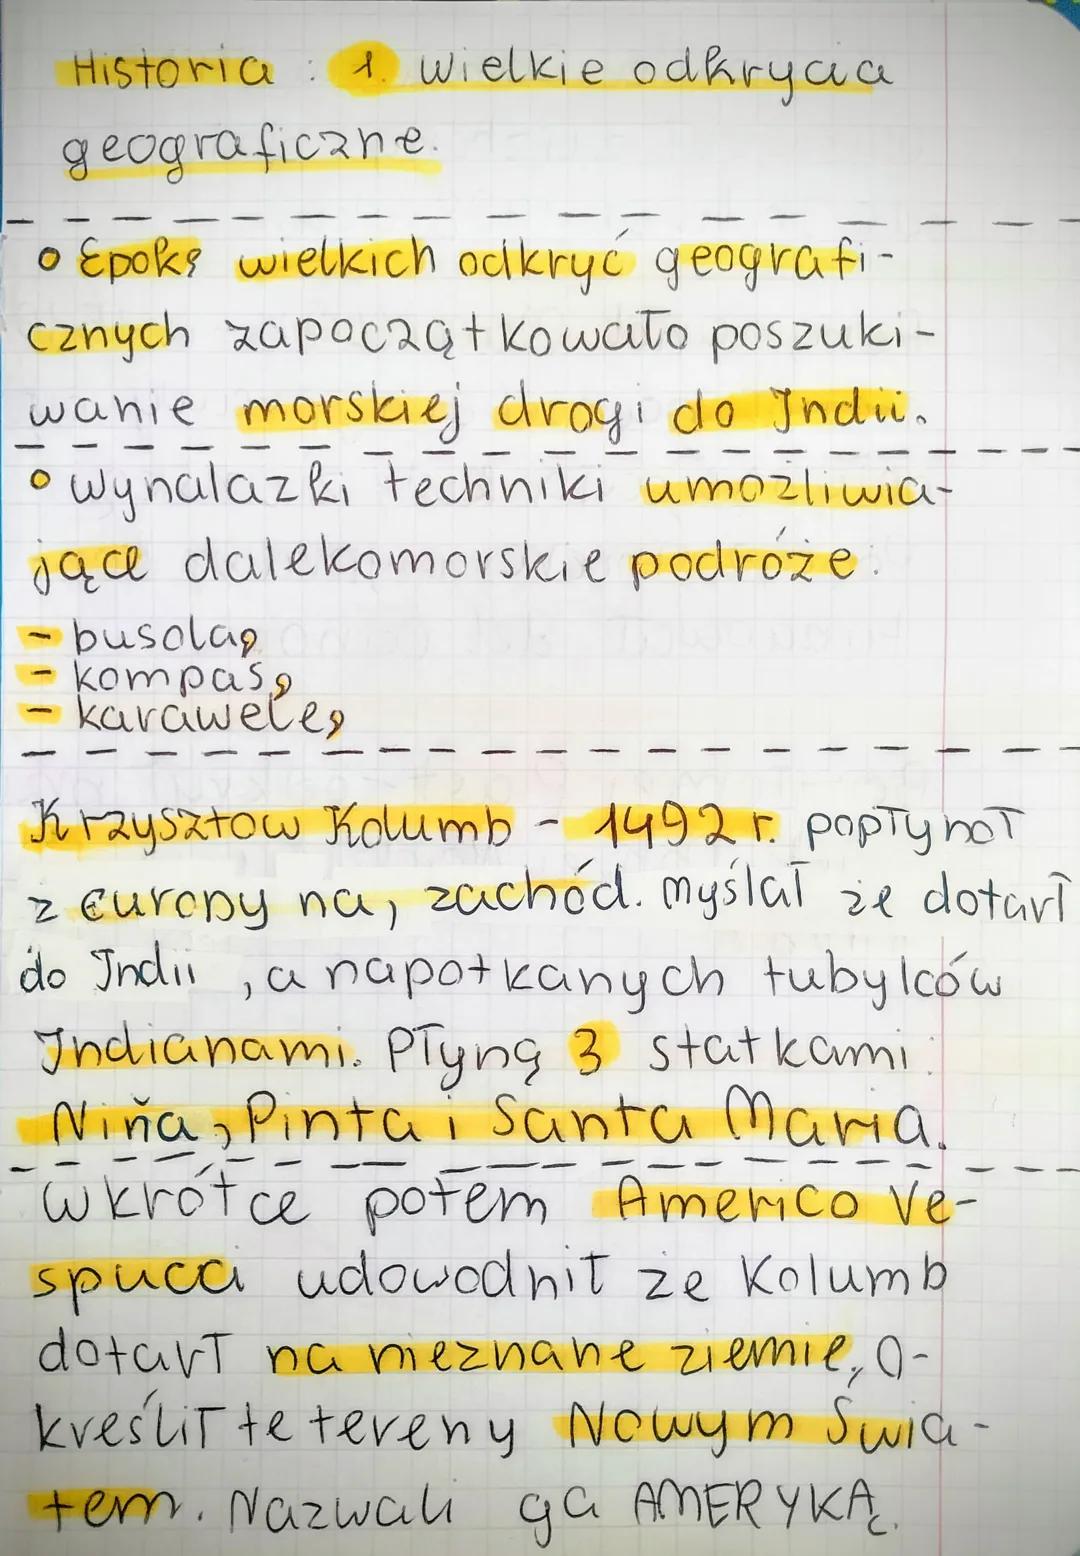 Historia : 1. wielkie odkrycia
geograficzne.
Epokę wielkich odkryć geografi-
cznych zapoczątkowało poszuki-
wanie morskiej drogi do Indii.
wynalazki techniki umożliwia-
jące dalekomorskie podróże:
- busola,
- kompas,
- karawele,
Krzysztow Kolumb - 1492 r. popłynoł
z europy na, zachód. myślał że dotarł
do Indii , a napotkanych tubylców
Indianami. Płyną 3 statkami:
Niña, Pinta i Santa Maria.
Wkrótce potem Americo Ve-
spucci udowodnił że Kolumb
dotarł na nieznane ziemie, O-
kreślił te tereny Nowym Świa-
tem. Nazwali ga AMERYKĄ.